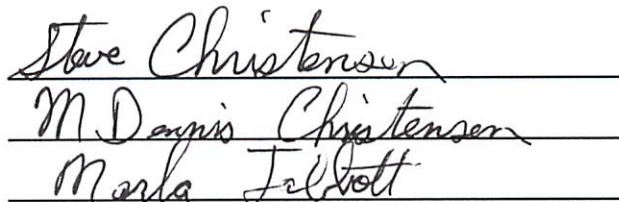 Steve Christensen
M Dennis Christensen
Marla Talbott